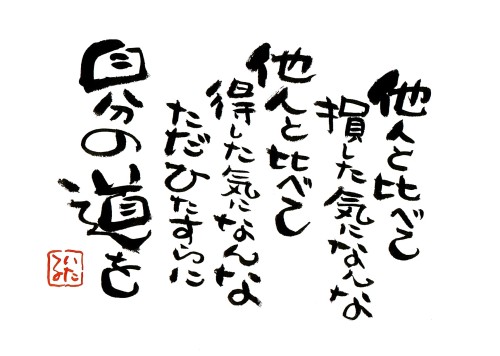 他人と比べて
損した気になんな
他人と比べて
得した気になんな
ただひたすらに
自分の道を